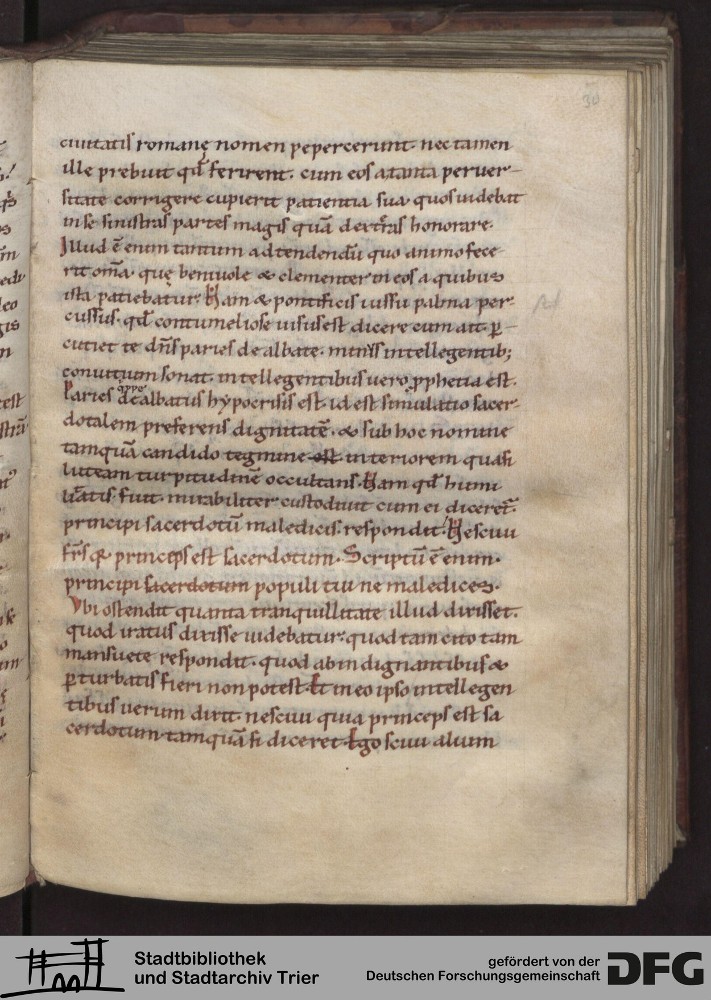 30
ciuitatis romanę nomen pepercerunt. nec tamen
ille prebuit qd̄ ferirent. cum eos a tanta peruer-
sitate corrigere cupierit patientia sua quos uidebat
in se sinistras partes magis quā dextras honorare.
Illud ē enim tantum adtendendū quo animo fece-
rit om̄a. quę beniuole & clementer in eos a quibus
ista patiebatur. Nam & pontificis iussu palma per-
cussus. qd̄ contumeliose uisus est dicere cum ait. ꝑ-
cutiet te dn̄s paries dealbate. minus intellegentib;
conuitium sonat. intellegentibus uero ꝓphetia est.
Paries dealbatus hypocrisis est. id est simulatio sacer-
dotalem preferens dignitatē. & sub hoc nomine
tamquā candido tegmine est interiorem quasi
luteam turpitudinē occultans. Nam qd̄ humi
litatis fuit. mirabiliter custodiuit cum ei diceret̄.
principi sacerdotū maledicis. respondit. Nesciui
frs̄ q; princeps est sacerdotum. Scriptū ē enim.
principi sacerdotum populi tui ne maledices.
Vbi ostendit quanta tranquillitate illud dixisset.
quod iratus dixisse uidebatur. quod tam cito tam
mansuete respondit. quod ab indignantibus &
ꝑturbatis fieri non potest. Et in eo ipso intellegen
tibus uerum dixit. nesciui quia princeps est sa
cerdotum. tamquā si diceret. Ego sciui alium
Stadtbibliothek
und Stadtarchiv Trier
gefördert von der
Deutschen Forschungsgemeinschaft
DFG